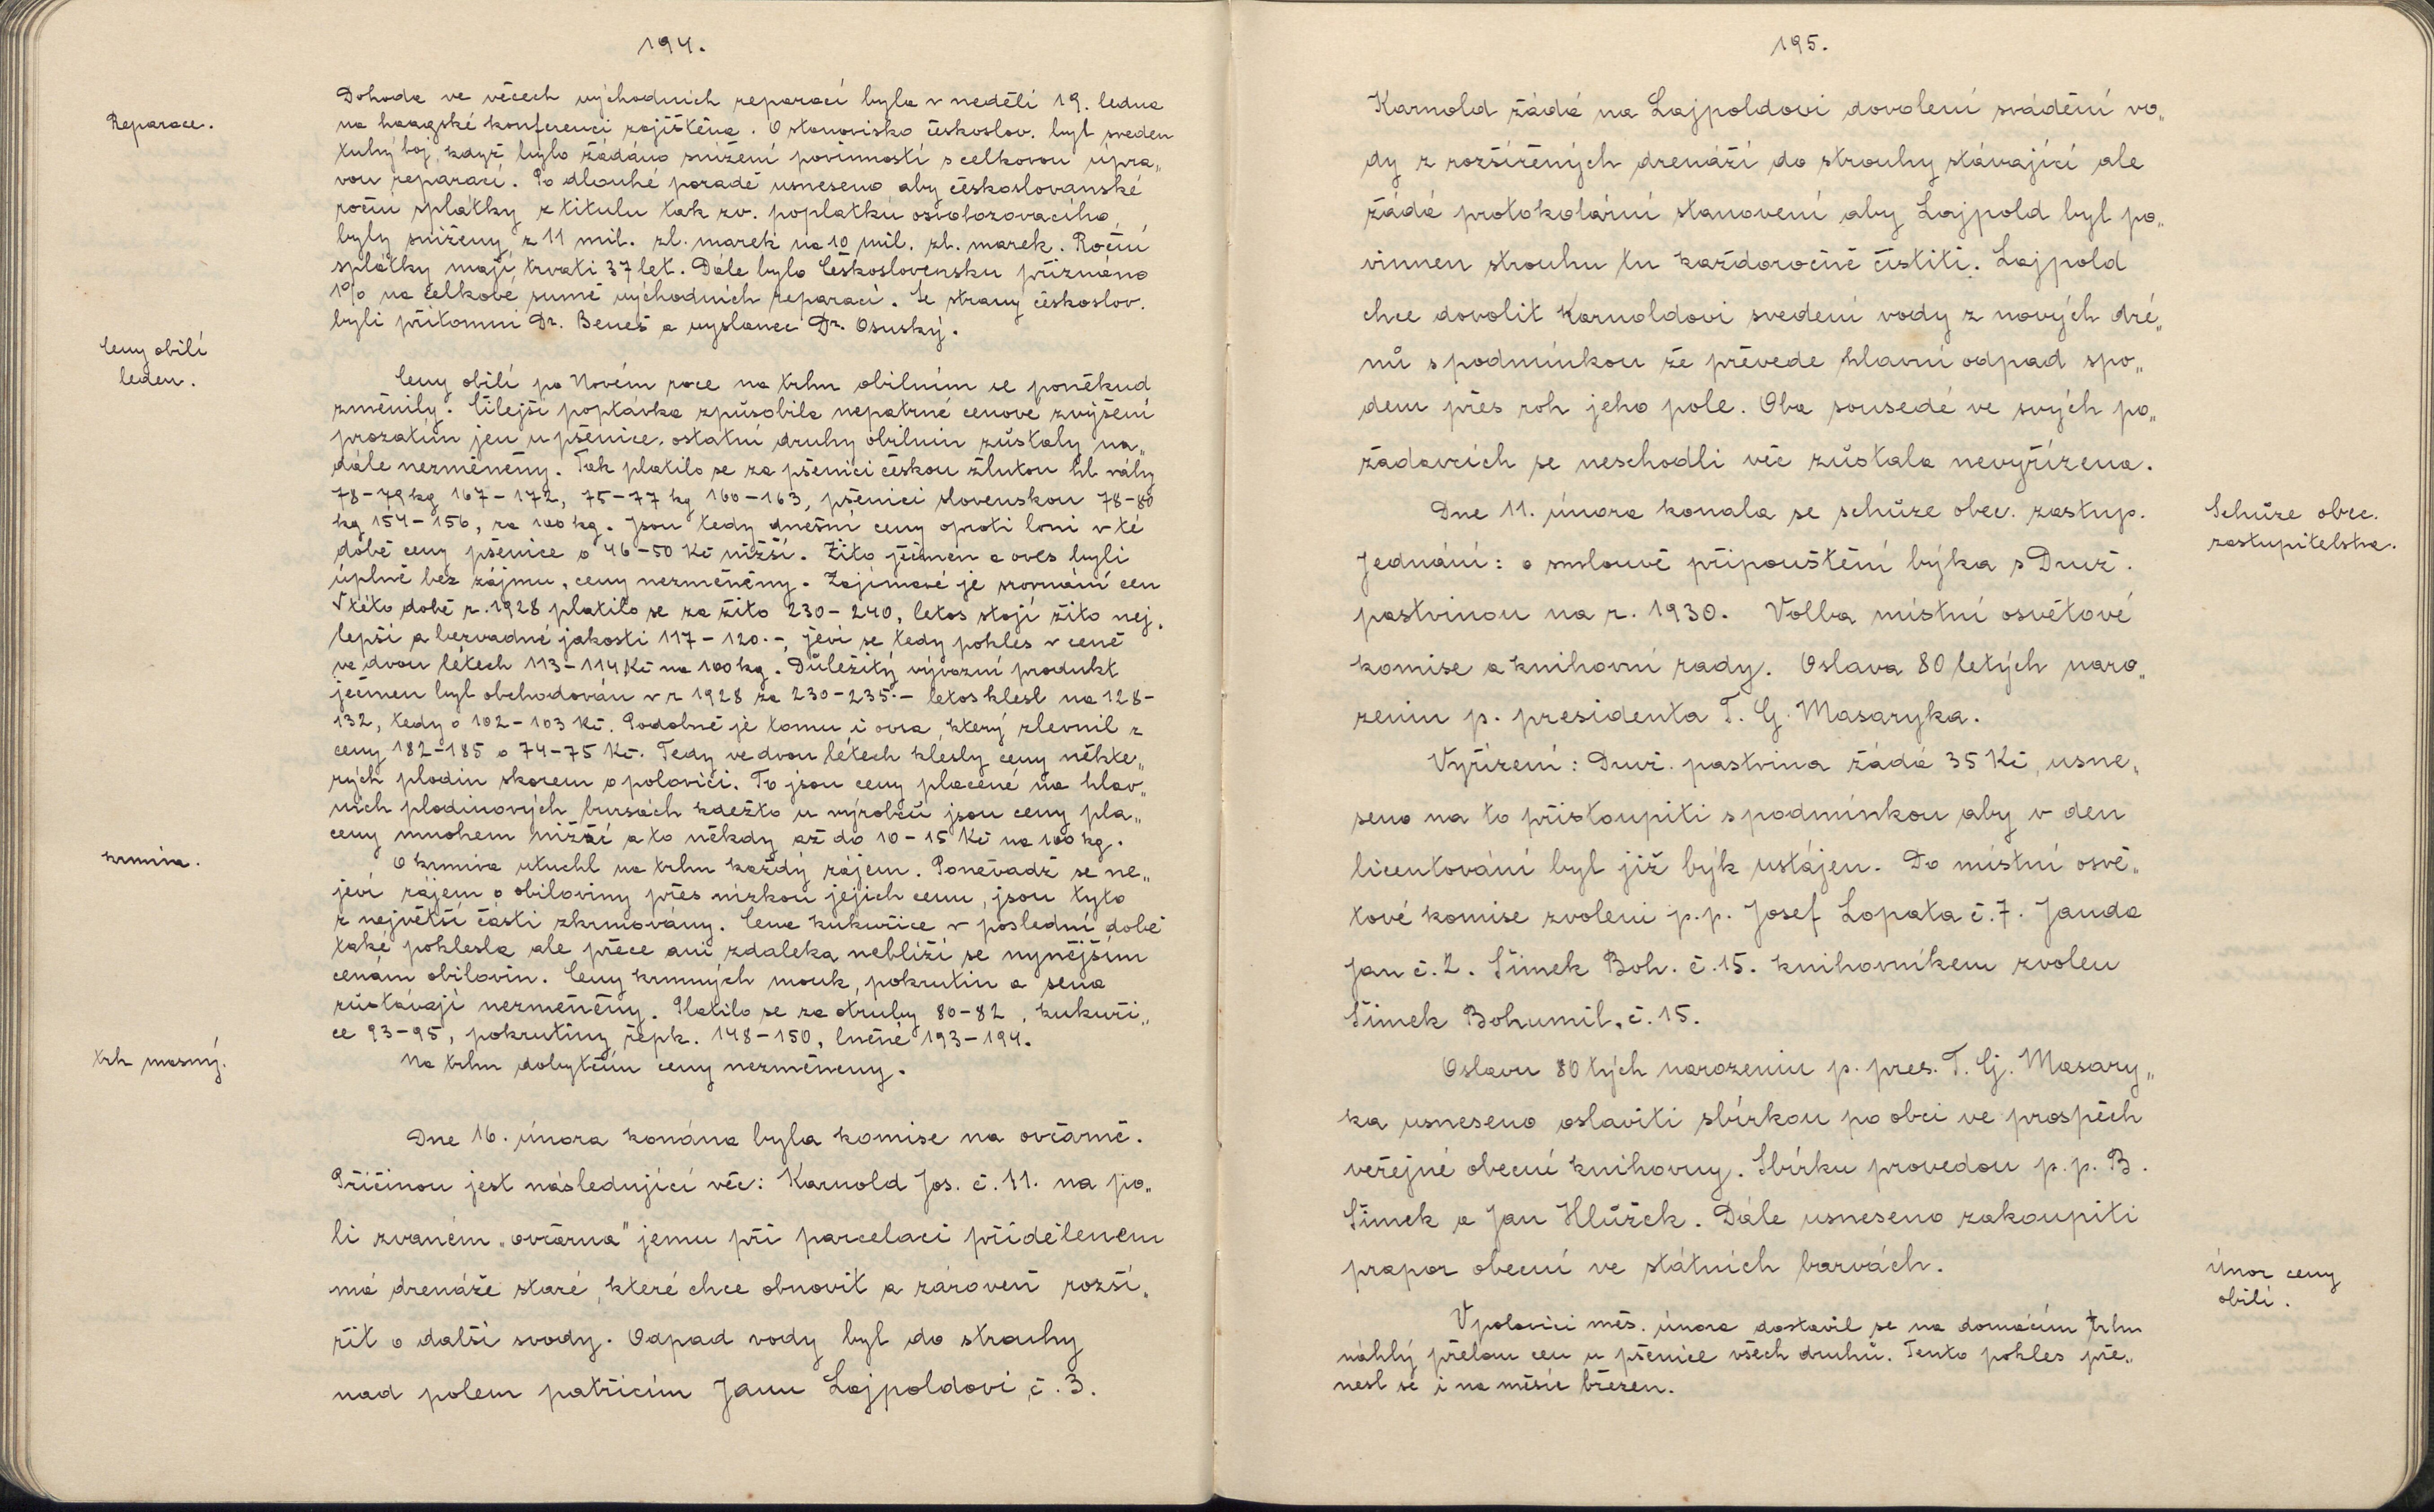 194.
Reparace.
Dohoda ve věcech východních reparací byla v neděli 19. ledna
na haagské konferenci zajištěna. O stanovisko českoslov. byl sveden
tuhý boj, když bylo žádáno snížení povinností s celkovou úpra„
vou reparací. Po dlouhé poradě usneseno aby československé
roční splátky z titulu tak zv. poplatku osvobozovacího,
byly sníženy z 11 mil. zl. marek na 10 mil. zl. marek. Roční
splátky mají trvati 37 let. Dále bylo Československu přiznáno
1% na celkové sumě východních reparací. Se strany českoslov.
byli přítomni Dr. Beneš a vyslanec Dr. Osuský.
Ceny obilí
leden.
Ceny obilí po Novém roce na trhu obilním se poněkud
změnily. Čilejší poptávka způsobila nepatrné cenové zvýšení
prozatím jen u pšenice. ostatní druhy obilnin zůstaly na„
dále nezměněny. Tak platilo se za pšenici českou žlutou hl váhy
78-79 kg 167-172, 75-77 kg 160-163, pšenici slovenskou 78-80
kg 154-156, za 100 kg. Jsou tedy dnešní ceny oproti loni v té
době ceny pšenice o 46-50 Kč nižší. Žito ječmen a oves byli
úplně bez zájmu, ceny nezměněny. Zajímavé je srovnání cen
V této době r. 1928 platilo se za žito 230-240, letos stojí žito nej„
lepší a bezvadné jakosti 117-120.-, jeví se tedy pohles v ceně
ve dvou létech 113-114 Kč na 100 kg. Důležitý vývozní produkt
ječmen byl obchodován v r 1928 za 230-235.- letos klesl na 128-
132, tedy o 102-103 Kč. Podobně je tomu i ovsa, který zlevnil z
ceny 182-185 o 74-75 Kč. Tedy ve dvou létech klesly ceny někte„
rých plodin skorem o polovici. To jsou ceny placené na hlav„
ních plodinových bursách kdežto u výrobců jsou ceny pla„
ceny mnohem nižší a to někdy až do 10-15 Kč na 100 kg.
krmiva.
O krmiva utuchl na trhu každý zájem. Poněvadž se ne„
jeví zájem o obiloviny přes nízkou jejich cenu, jsou tyto
z největší části zkrmovány. Cena kukuřice v poslední době
také pohlesla ale přece ani zdaleka neblíží se nynějším
cenám obilovin. Ceny krmných mouk, pokrutin a sena
zůstávají nezměněny. Platilo se za otruby 80-82, kukuři„
ce 93-95, pokrutiny řepk. 148-150, lněné 193-194.
trh masný.
Na trhu dobytčím ceny nezměneny.
Dne 16. února konána byla komise na ovčárně.
Příčinou jest následující věc: Karnold Jos. č. 11. na po„
li zvaném „ovčárna" jemu při parcelaci přídělenem
má drenáže staré, které chce obnovit a zároveň rozší„
řit o další svody. Odpad vody byl do strouhy
nad polem patřícím Janu Lajpoldovi, č. 3.
195.
Karnold žádá na Lajpoldovi dovolení svádění vo„
dy z rozšířených drenáží do strouhy stávající ale
žádá protokolární stanovení aby Lajpold byl po„
vinnen strouhu tu každoročně čistiti. Lajpold
chce dovolit Karnoldovi svedení vody z nových dré„
nů s podmínkou že převede hlavní odpad spo„
dem přes roh jeho pole. Oba sousedé ve svých po„
žadavcích se neschodli věc zůstala nevyřízena.
Schůze obec.
zastupitelstva.
Dne 11. února konala se schůze obec. zastup.
Jednání: o smlouvě připouštění býka s Druž.
pastvinou na r. 1930. Volba místní osvětové
komise a knihovní rady. Oslava 80 letých naro„
zenin p. presidenta T. G. Masaryka.
Vyřízení: Druž. pastvina žádá 35 Kč, usne„
seno na to přistoupiti s podmínkou aby v den
licentování byl již býk ustájen. Do místní osvě„
tové komise zvoleni p.p. Josef Lopata č. 7. Janda
Jan č. 2. Šimek Boh. č. 15. knihovníkem zvolen
Šimek Bohumil, č. 15.
Oslavu 80 tých narozenin p. pres. T. G. Masary„
ka usneseno oslaviti sbírkou po obci ve prospěch
veřejné obecní knihovny. Sbírku provedou p. p. B.
Šimek a Jan Hlůžek. Dále usneseno zakoupiti
prapor obecní ve státních barvách.
Únor ceny
obilí.
V polovici měs. února dostavil se na domácím trhu
náhlý přelom cen u pšenice všech druhů. Tento pohles pře„
nesl se i na měsíc březen.